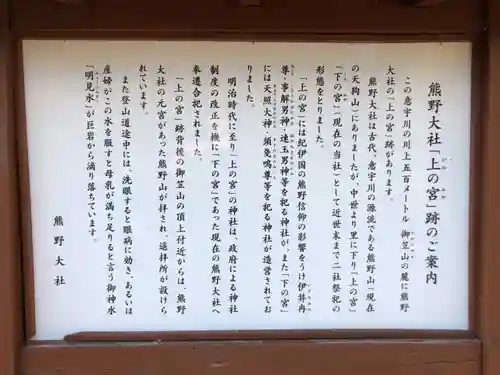 熊野大社「上の宮」跡のご案内
この意宇川の川上五百メートル 御笠山の麓に熊野
大社の「上の宮」跡があります。
熊野大社は古代、意宇川の源流である熊野山(現在
の天狗山)にありましたが、中世より里に下り「上の宮」
「下の宮」(現在の当社)として近世末まで二社祭祀の
形態をとりました。
「上の宮」には紀伊国の熊野信仰の影響をうけ伊弉冉
尊・事解男神・速玉男神等を祀る神社が、また「下の宮」
には天照大神・須佐之男尊等を祀る神社が造営されてお
りました。
明治時代に至り「上の宮」の神社は、政府による神社
制度の改正を機に「下の宮」であった現在の熊野大社へ
奉遷合祀されました。
「上の宮」跡背後の御笠山の頂上付近からは、熊野
大社の元宮があった熊野山が拝され、遥拝所が設けら
れています。
また登山道途中には、洗眼すると眼病に効き、あるいは
産婦がこの水を服すと母乳が満ち足りると言う御神水
「明見水」が巨岩から滴り落ちています。
熊野大社